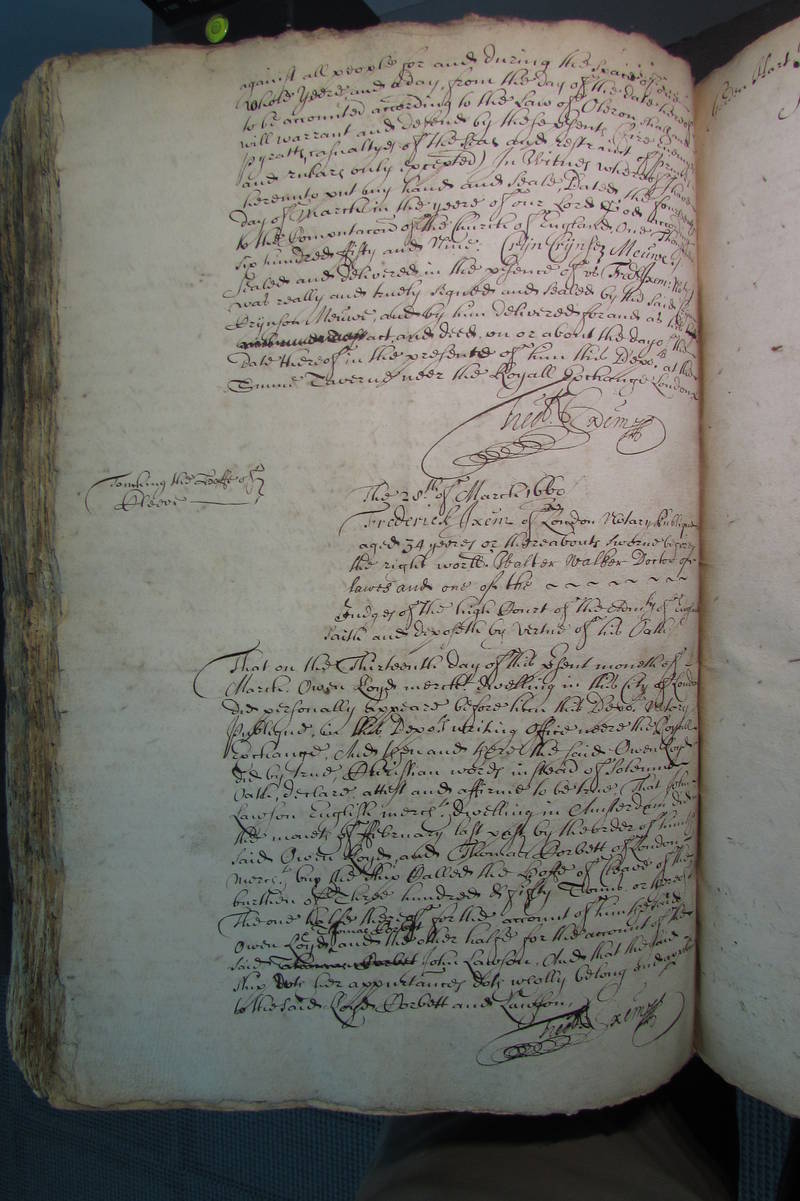 against all people for and during the space of one
whole yeere and a day, from the day of the date hereof
to be accounted according to the Law of Oleron shall and
will warrant and defend by these pñts (fire Enemyes
Pyratts, casualtyes of the seas and restraint of Princes
and rulars only excepted) In Witnes whereof I have
hereunto put my hand and seale, Dated the
day of March in the yeere of our Lord God according
to the Computacon of the Church of England, One Thousand
six hundred fifty and Nine. Crijn Crijnsez Meuwe
Sealed and delivered in the pñsence of us Fred: Ixem: Not
was really and truely signed and sealed by the said
Crijnson Meuwe, and by him delivered for and as his
act and deed, on or about the day of the
Date thereof in the presence of him this Depot. at the
Taverne neer the Royall Exchange London
Fred: Ixem
Touching the Hoffe of
Cleave
The 28th of March 1660
Frederick Ixem of London Notary Publique
aged 34 yeeres or thereabouts sworne before
the right worll. Walter Walker Doctor of
lawes and one of the
Judges of the high Court of the Admlty of England
saith and deposeth by vertue of his Oath
That on the Thirteenth day of this pñsent moneth of
March. Owen Loyd mercht. dwelling in this City of London
did personally appeare before him this Depot. Notary
Publique, in this Depots. writing Office neere the Royall
Exchange, And then and there the said Owen Loyd
did by true, Christian words in stead of solemne
Oath, declare, attest and affirme to be true, That John
Lawson English mercht. dwelling in Amsterdam did in
the moneth of February last past by the order of him the
said Owen Loyd, and Thomas Corbett of London
mercht. buy the ship called the Hoffe of Cleave of the
burthen of Three hundred & fifty Tonns or thereabouts
The one halfe thereof for the account of him the said
Owen Loyd, and Thomas Corbett and the other halfe for the account of the
said Thomas Corbet John Lawson, And that the said
ship with her appurtances doth wholly belong and appertaine
to the said Loyd, Corbett and Lawson,
Fred: Ixem